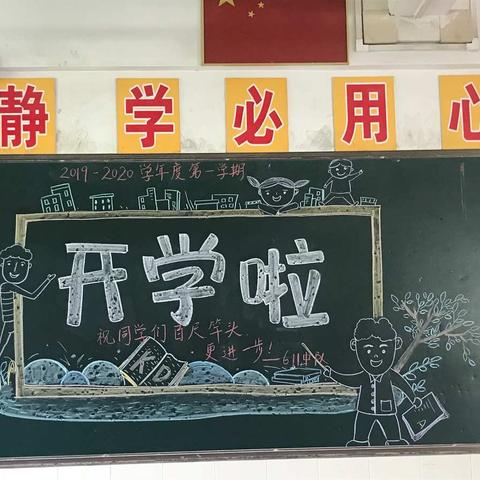 静 学 必 用 心
2019-2020学年度第一学期
开学啦
祝同学们百尺竿头
更进一步!—611中队
KD
D